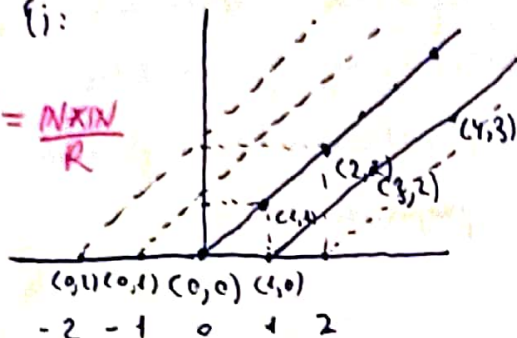 Ej:
= IN×IN
R
(4,3)
(2,2)
(3,2)
(1,1)
(0,2) (0,1) (0,0) (1,0)
-2 -1 0 1 2